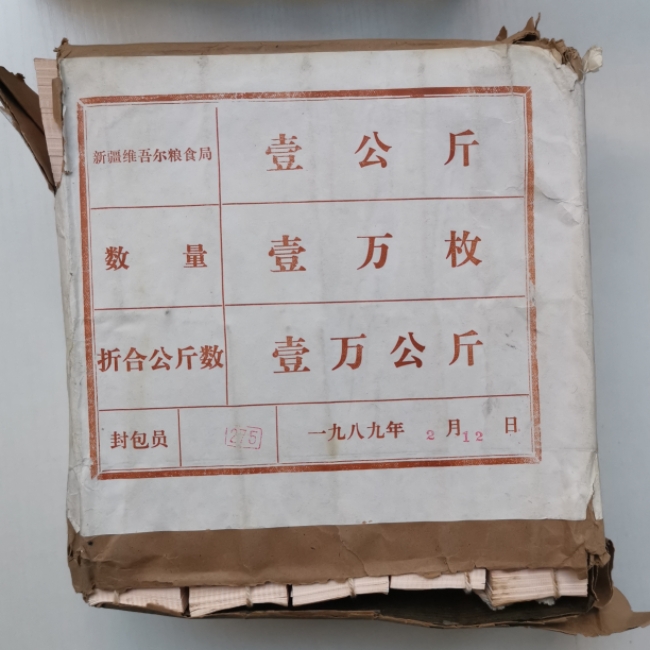 新疆维吾尔粮食局 壹公斤
数量 壹万枚
折合公斤数 壹万公斤
封包员 275 一九八九年 2月12日